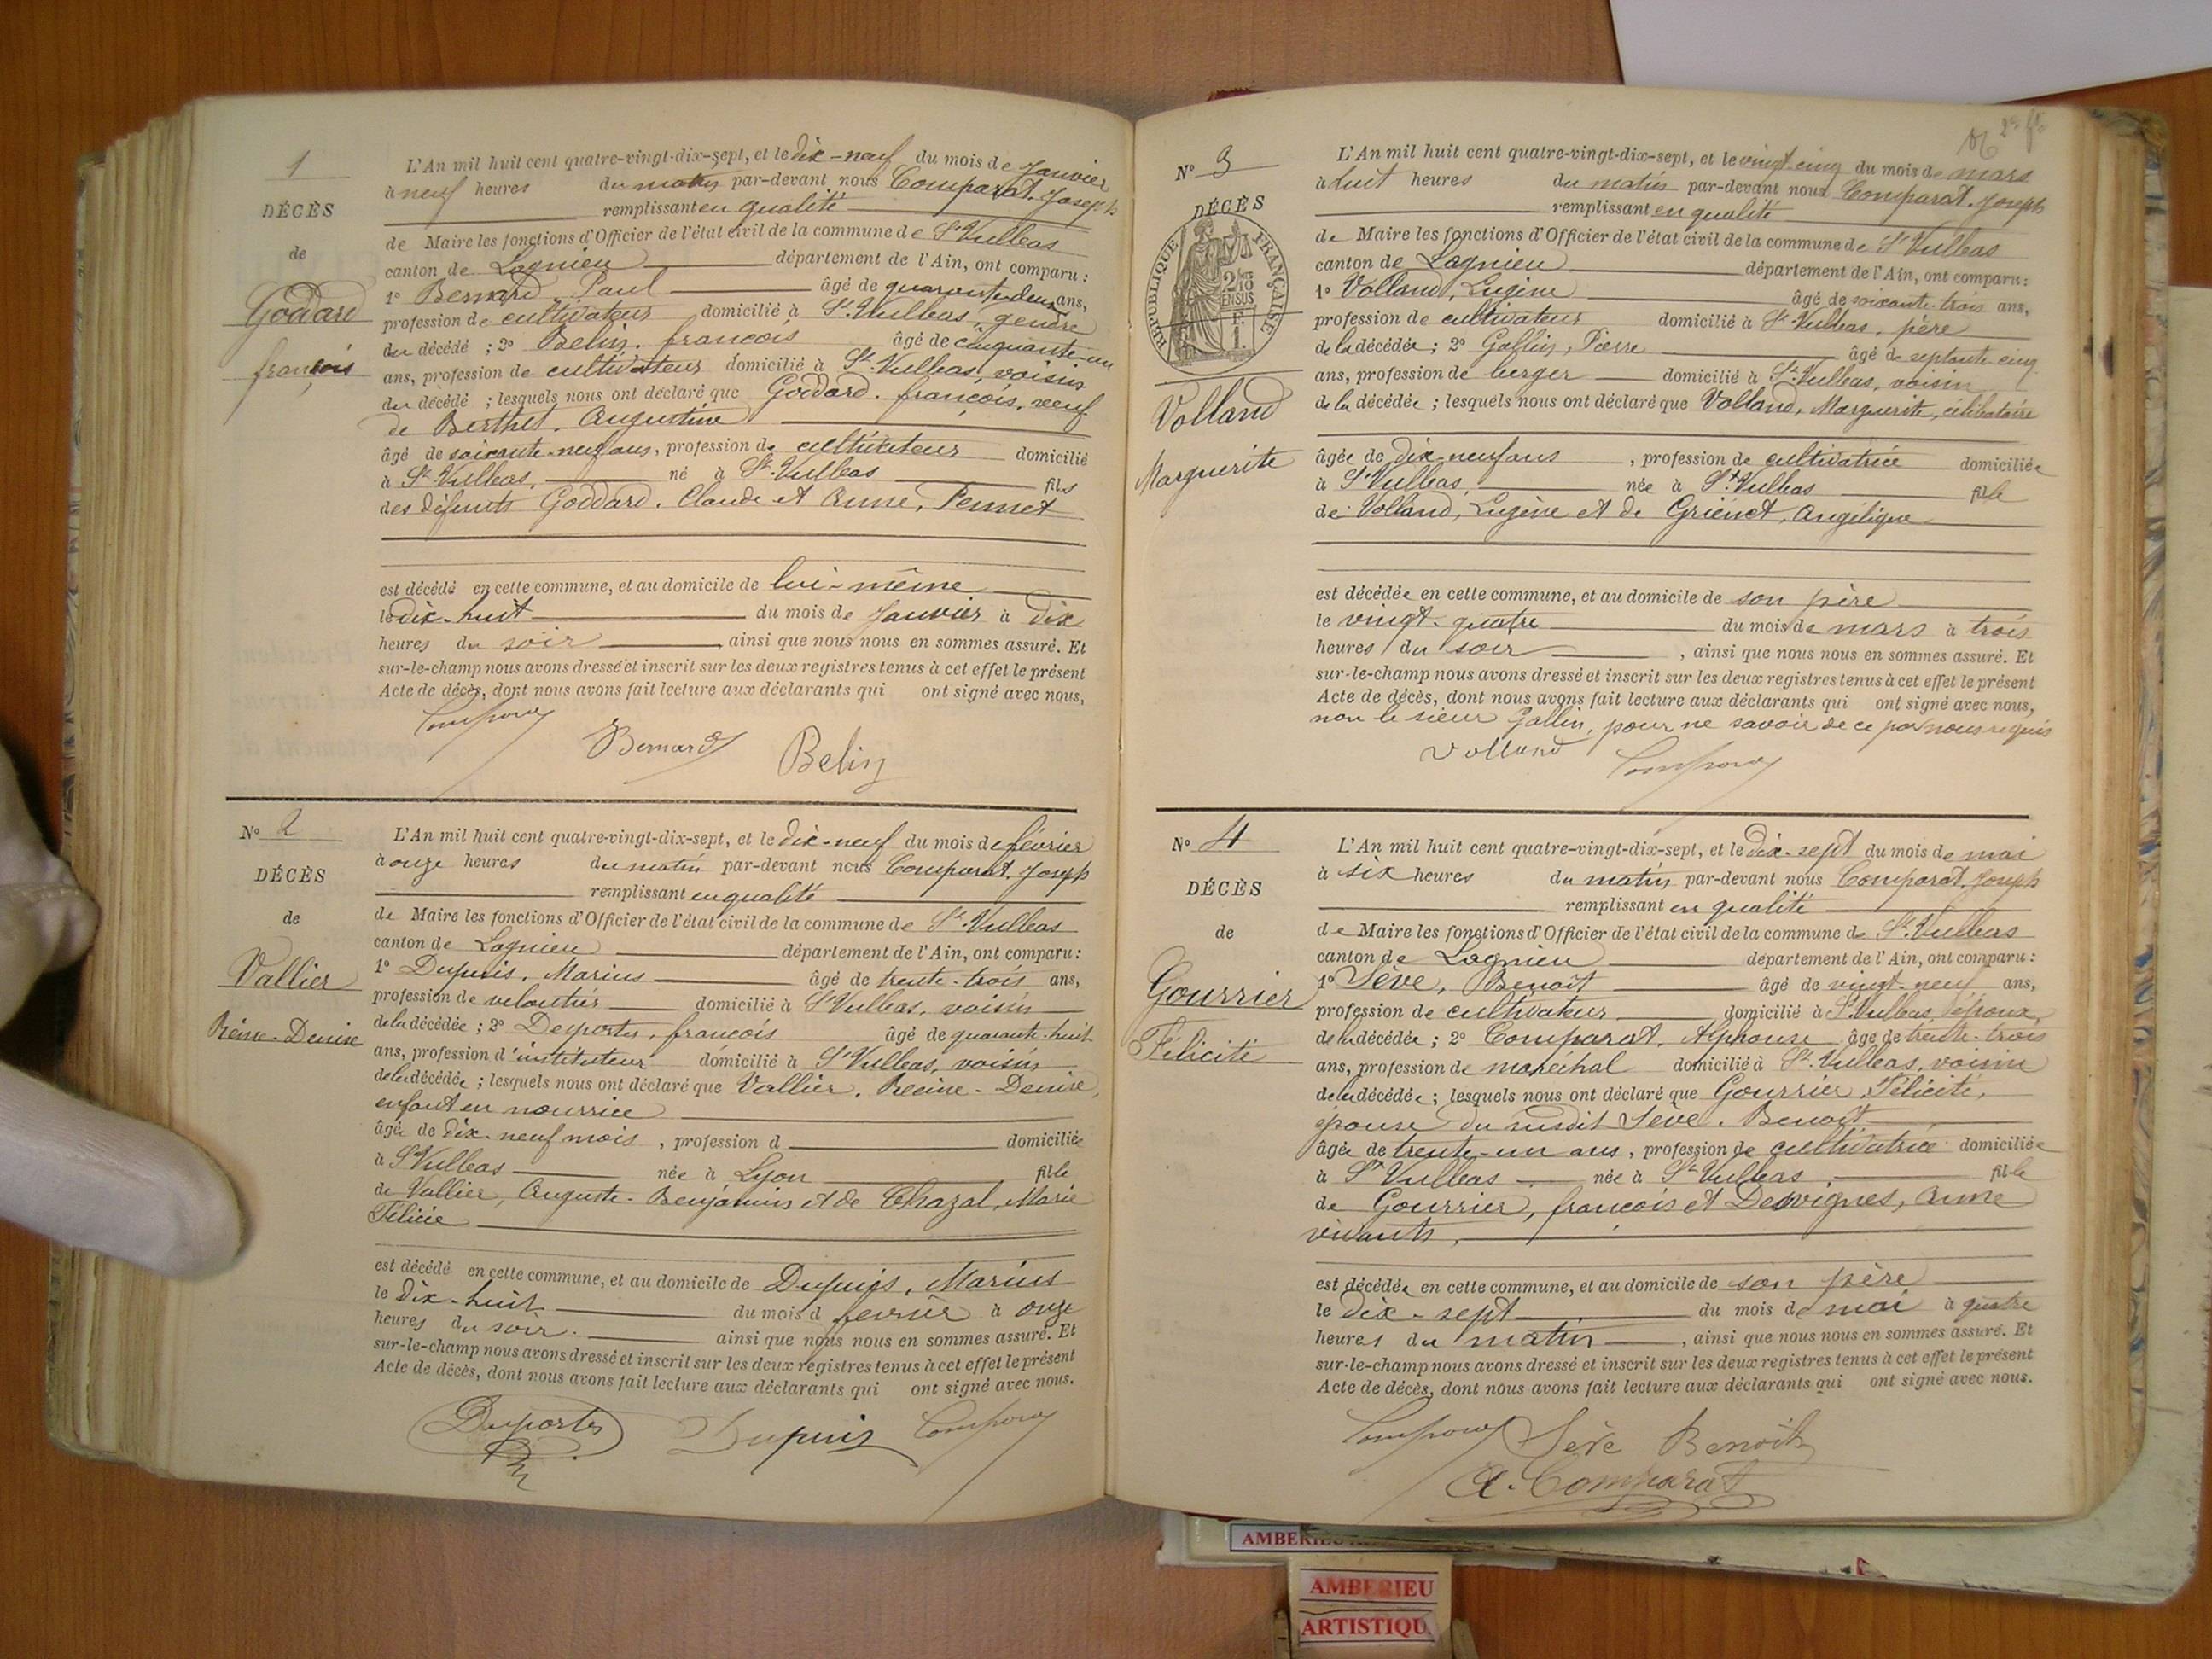 1
DÉCÈS
de
Goddard
françois
L'An mil huit cent quatre-vingt-dix-sept, et le dix-neuf du mois de Janvier
à neuf heures du matin par-devant nous Comparat, Joseph
remplissant en qualité
de Maire les fonctions d'Officier de l'état civil de la commune de St Vulbas
canton de Lagnieu département de l'Ain, ont comparu :
1° Bernard Paul âgé de quarante-deux ans,
profession de cultivateur domicilié à St Vulbas, gendre
du décédé ; 2° Belin, françois âgé de cinquante-un
ans, profession de cultivateur domicilié à St Vulbas, voisin
du décédé ; lesquels nous ont déclaré que Goddard, françois, veuf
de Berthet, Augustine
âgé de soixante-neuf ans, profession de cultivateur domicilié
à St Vulbas, né à St Vulbas fils
des défunts Goddard, Claude et Anne, Pennet
est décédé en cette commune, et au domicile de lui-même
le dix-huit du mois de Janvier à dix
heures du soir ainsi que nous nous en sommes assuré. Et
sur-le-champ nous avons dressé et inscrit sur les deux registres tenus à cet effet le présent
Acte de décès, dont nous avons fait lecture aux déclarants qui ont signé avec nous,
Bernard Belin
N° 2
DÉCÈS
de
Vallier
Reine-Denise
L'An mil huit cent quatre-vingt-dix-sept, et le dix-neuf du mois de février
à onze heures du matin par-devant nous Comparat, Joseph
remplissant en qualité
de Maire les fonctions d'Officier de l'état civil de la commune de St Vulbas
canton de Lagnieu département de l'Ain, ont comparu :
1° Dupuis, Marius âgé de trente-trois ans,
profession de veloutier domicilié à St Vulbas, voisin
de la décédée ; 2° Desportes, françois âgé de quarante-huit
ans, profession d'instituteur domicilié à St Vulbas, voisin
de la décédée ; lesquels nous ont déclaré que Vallier, Reine-Denise,
enfant en nourrice
âgée de dix-neuf mois, profession d domiciliée
à St Vulbas née à Lyon fille
de Vallier, Auguste-Benjamin et de Chazal, Marie
Félicie
est décédé en cette commune, et au domicile de Dupuis, Marius
le dix-huit du mois d février à onze
heures du soir. ainsi que nous nous en sommes assuré. Et
sur-le-champ nous avons dressé et inscrit sur les deux registres tenus à cet effet le présent
Acte de décès, dont nous avons fait lecture aux déclarants qui ont signé avec nous.
Desportes Dupuis
N° 3
DÉCÈS
RÉPUBLIQUE FRANÇAISE
Volland
Marguerite
L'An mil huit cent quatre-vingt-dix-sept, et le vingt-cinq du mois de mars
à huit heures du matin par-devant nous Comparat, Joseph
remplissant en qualité
de Maire les fonctions d'Officier de l'état civil de la commune de St Vulbas
canton de Lagnieu département de l'Ain, ont comparu :
1° Volland, Eugène âgé de soixante-trois ans,
profession de cultivateur domicilié à St Vulbas, père
de la décédée ; 2° Gallin, Pierre âgé de septante-cinq
ans, profession de berger domicilié à St Vulbas, voisin
de la décédée ; lesquels nous ont déclaré que Volland, Marguerite, célibataire
âgée de dix-neuf ans, profession de cultivatrice domiciliée
à St Vulbas, née à St Vulbas fille
de Volland, Eugène et de Grienet, Angélique
est décédée en cette commune, et au domicile de son père
le vingt-quatre du mois de mars à trois
heures du soir, ainsi que nous nous en sommes assuré. Et
sur-le-champ nous avons dressé et inscrit sur les deux registres tenus à cet effet le présent
Acte de décès, dont nous avons fait lecture aux déclarants qui ont signé avec nous,
non le sieur Gallin, pour ne savoir de ce par nous requis
Volland
N° 4
DÉCÈS
de
Gourrier
Félicité
L'An mil huit cent quatre-vingt-dix-sept, et le dix-sept du mois de mai
à six heures du matin par-devant nous Comparat, Joseph
remplissant en qualité
de Maire les fonctions d'Officier de l'état civil de la commune de St Vulbas
canton de Lagnieu département de l'Ain, ont comparu :
1° Sève, Benoît âgé de vingt-neuf ans,
profession de cultivateur domicilié à St Vulbas, époux,
de la décédée ; 2° Comparat, Alphonse âgé de trente-trois
ans, profession de maréchal domicilié à St Vulbas, voisin
de la décédée ; lesquels nous ont déclaré que Gourrier, Félicité,
épouse du susdit Sève, Benoît
âgée de trente-un ans, profession de cultivatrice domiciliée
à St Vulbas née à St Vulbas, fille
de Gourrier, françois et Desvignes, Anne
vivants,
est décédée en cette commune, et au domicile de son père
le dix-sept du mois de mai à quatre
heures du matin, ainsi que nous nous en sommes assuré. Et
sur-le-champ nous avons dressé et inscrit sur les deux registres tenus à cet effet le présent
Acte de décès, dont nous avons fait lecture aux déclarants qui ont signé avec nous.
Sève Benoit
A. Comparat
AMBERIEU
AMBERIEU
ARTISTIQU